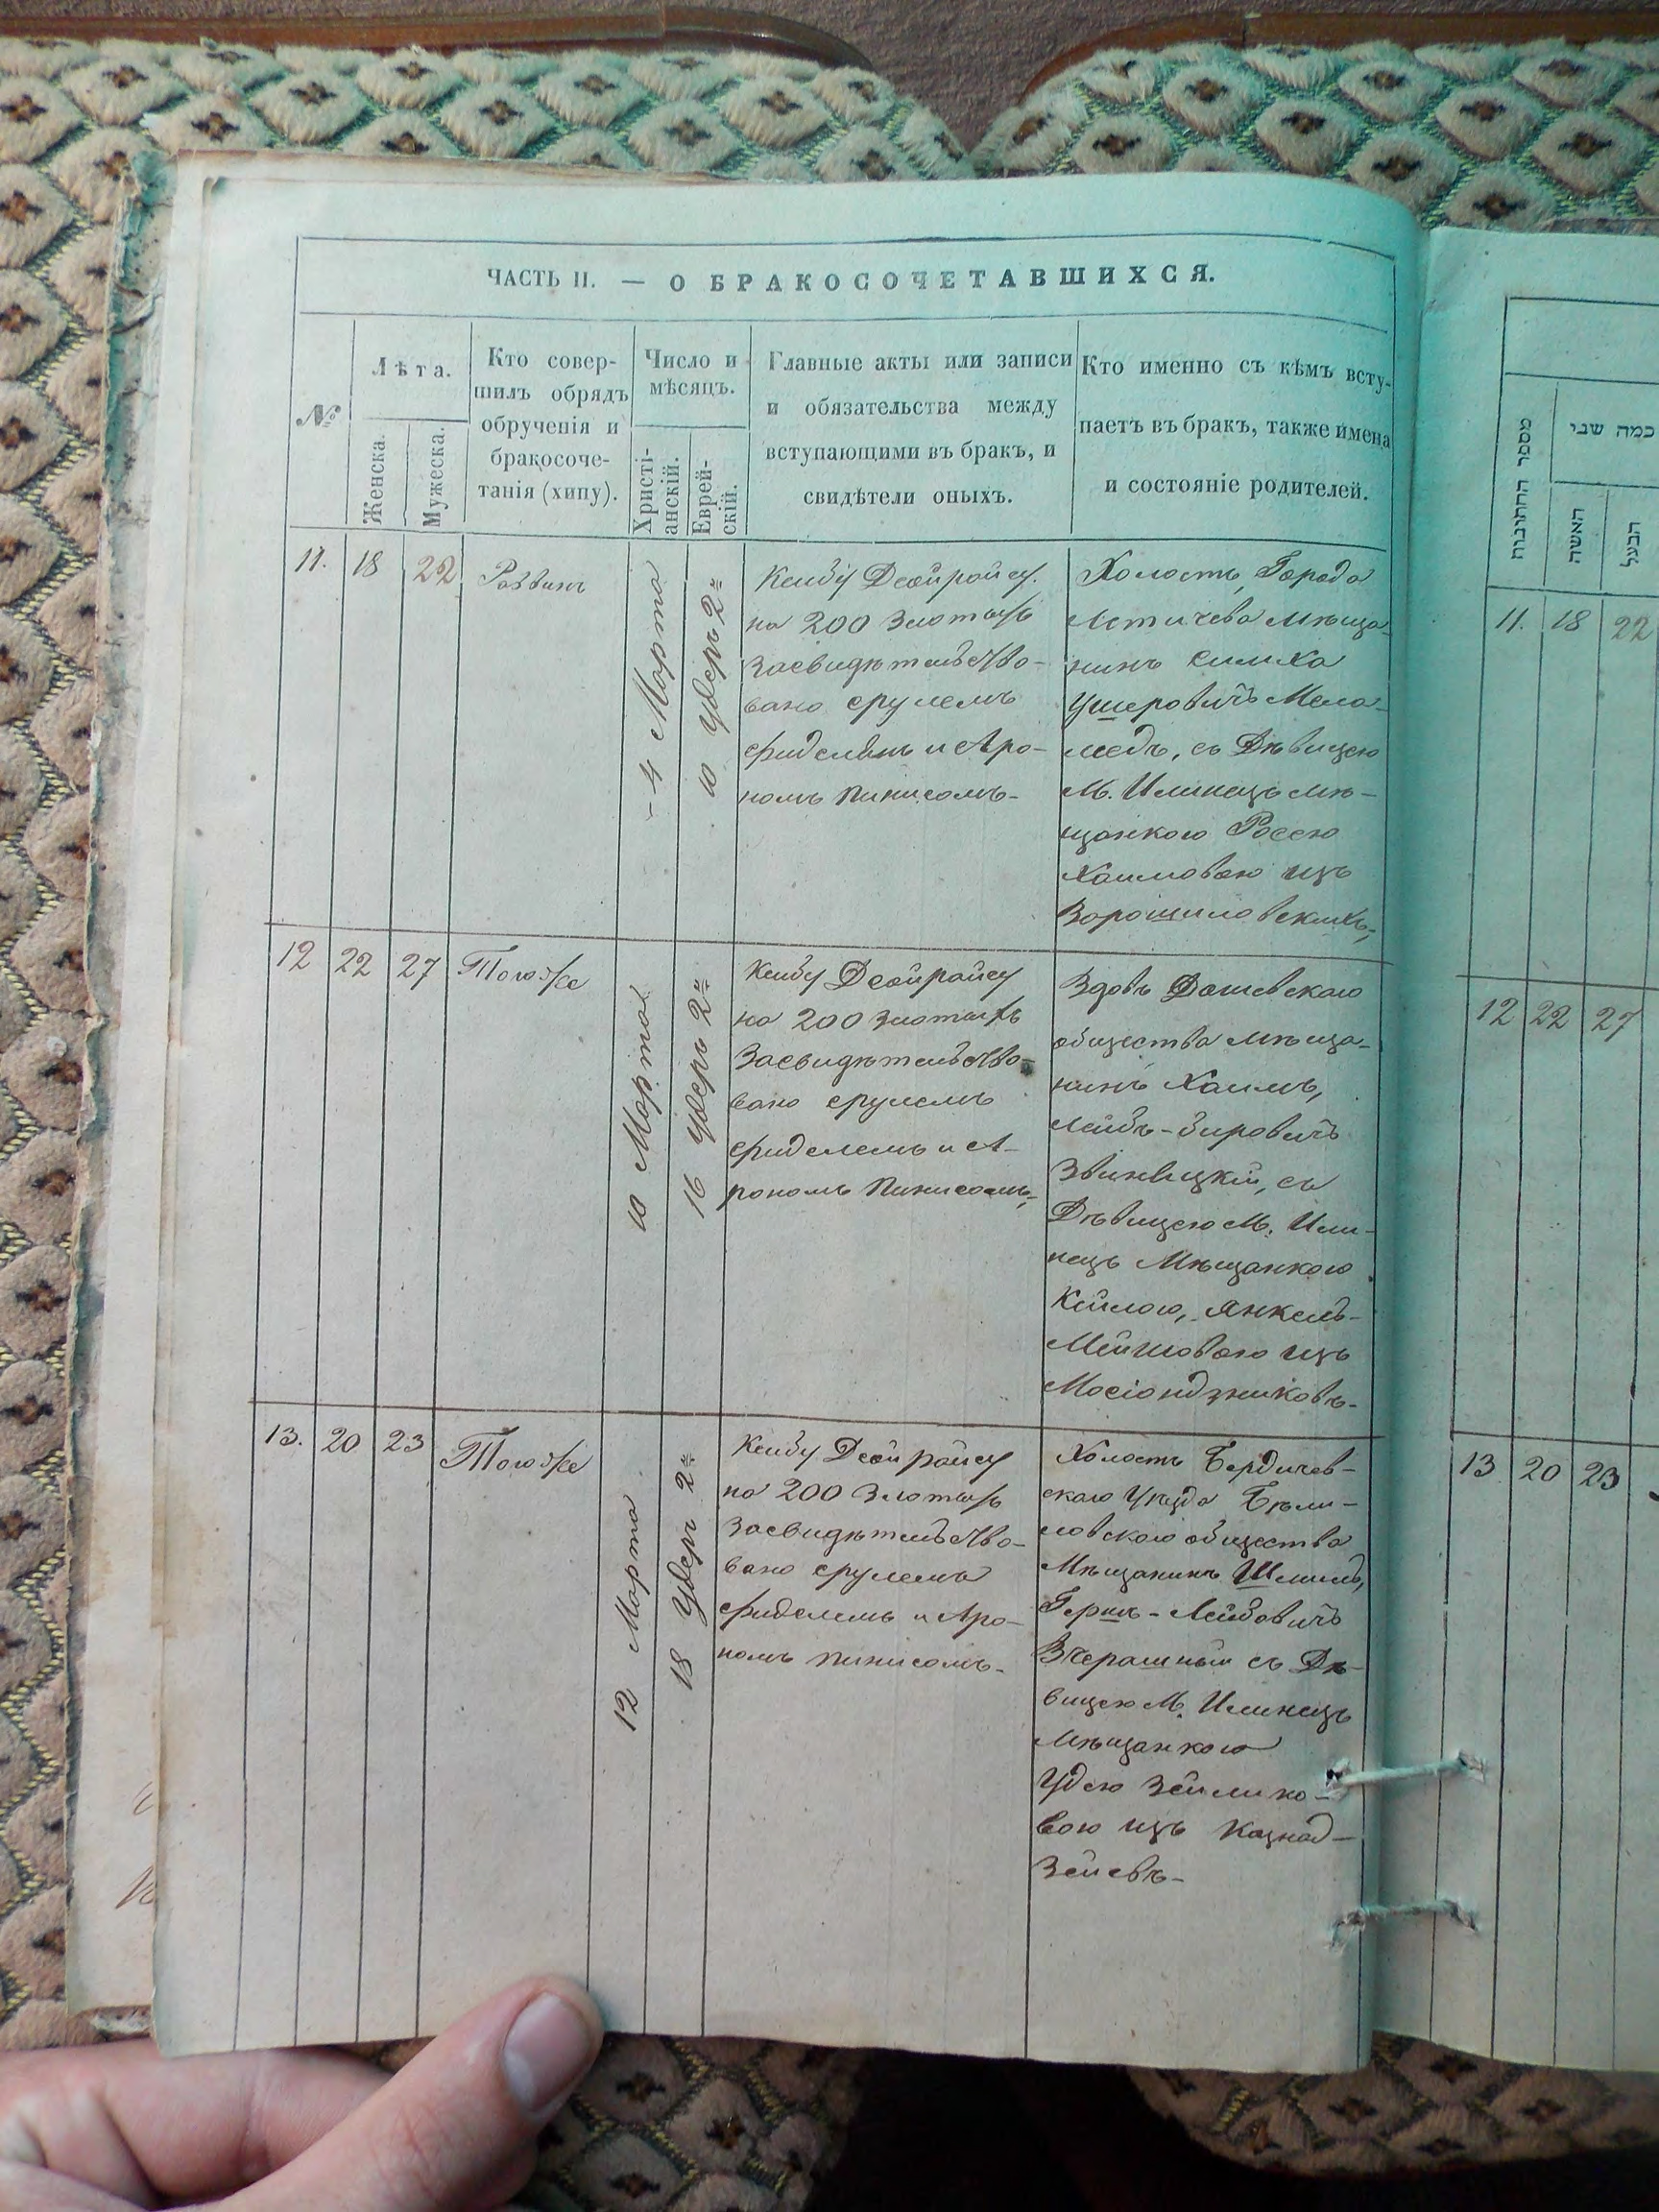 ЧАСТЬ II. — О БРАКОСОЧЕТАВШИХСЯ.
№
Лѣта.
Женска.
Мужеска.
Кто совер-
шилъ обрядъ
обрученія и
бракосоче-
танія (хипу).
Число и
мѣсяцъ.
Христі-
анскій.
Еврей-
скій.
Главные акты или записи
и обязательства между
вступающими въ бракъ, и
свидѣтели оныхъ.
Кто именно съ кѣмъ всту-
паетъ въ бракъ, также имена
и состояніе родителей.
11.
18
22
Раввинъ
4 Марта
10 Удеръ 2й
Ксибу Деойрайсу.
на 200 Злотыхъ
Засвидѣтельство-
вано Срулемъ
Фиделемъ и Аро-
номъ Пинисомъ-
Холостъ, Города
Летичева Мѣща-
нинъ Симха
Ушеровичъ Мела-
медъ, съ Дѣвицею
М. Илинецъ мѣ-
щанкою Росею
Хаимовою изъ
Ворошиловскихъ,
12
22
27
Тогоже
10 Марта
16 Удеръ 2й
Ксибу Деойрайсу
на 200 Злотыхъ
Засвидѣтельство-
вано Срулемъ
Фиделемъ и А-
рономъ Пинисомъ,
Вдовъ Дашевскаго
общества мѣща-
нинъ Хаимъ,
Лейбъ-Бировичъ
съ
Дѣвицею М. Или-
нецъ Мѣщанкою
Кейлою, Янкель-
Мейшовою изъ
13.
20
23
Тогоже
12 Марта
18 Удеръ 2й
Ксибу Деойрайсу
на 200 Злотыхъ
Засвидѣтельство-
вано Срулемъ
Фиделемъ и Аро-
номъ Пинисомъ-
Холостъ Бердичев-
скаго Уѣзда Бѣли-
ловского общества
Мѣщанинъ Шмиль,
Гершъ-Лейбовичъ
Вчерашный съ Дѣ-
вицею М. Илинецъ
Мѣщанкою
Удею Зейлико-
вою изъ Казнад-
зеиевъ-
מספר החתונות
כמה שני
האשה
הבעל
11.
18
22
12
22
27
13
20
23